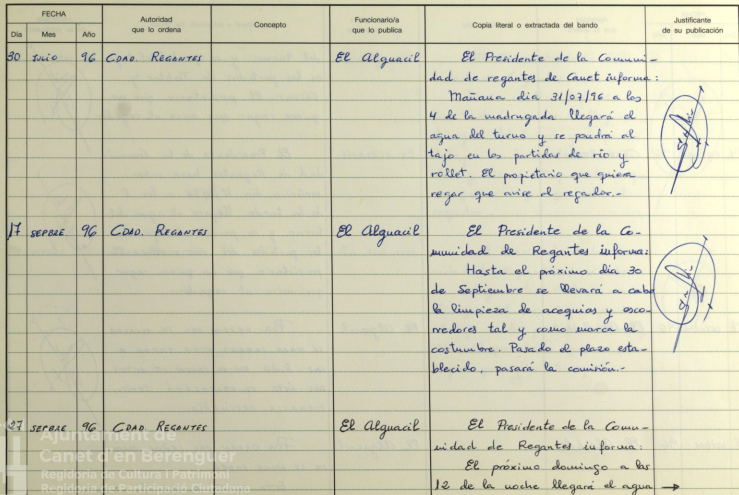 FECHA
Autoridad
que lo ordena
Concepto
Funcionario/a
que lo publica
Copia literal o extractada del bando
Justificante
de su publicación
Día Mes Año
30 JULIO 96 CDAD. REGANTES El Alguacil El Presidente de la Comuni-
dad de regantes de Canet informa:
Mañana dia 31/07/96 a las
4 de la madrugada llegará el
agua del turno y se pondrá al
tajo en las partidas de rio y
rollet. El propietario que quiera
regar que avise el regador.-
17 SEPBRE 96 CDAD. REGANTES El Alguacil El Presidente de la Co-
munidad de Regantes informa:
Hasta el próximo dia 30
de Septiembre se llevará a cabo
la limpieza de acequias y esco-
rredores tal y como marca la
costumbre. Pasado el plazo esta-
blecido, pasará la comisión.-
27 SEPBRE 96 CDAD. REGANTES El Alguacil El Presidente de la Comu-
nidad de Regantes informa:
El próximo domingo a las
12 de la noche llegará el agua →
Ajuntament de
Canet d'en Berenguer
Regidoria de Cultura i Patrimoni
Regidoria de Participació Ciutadana